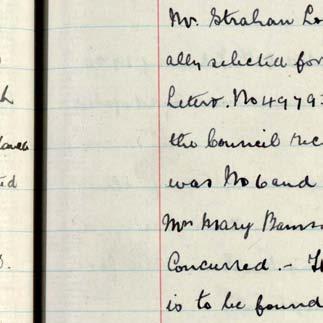 Mr. Strahan
ally selected for
Letter. No 4979
the Council rec
was No 6 and
Mrs Mary
Concurred. –
is to be found